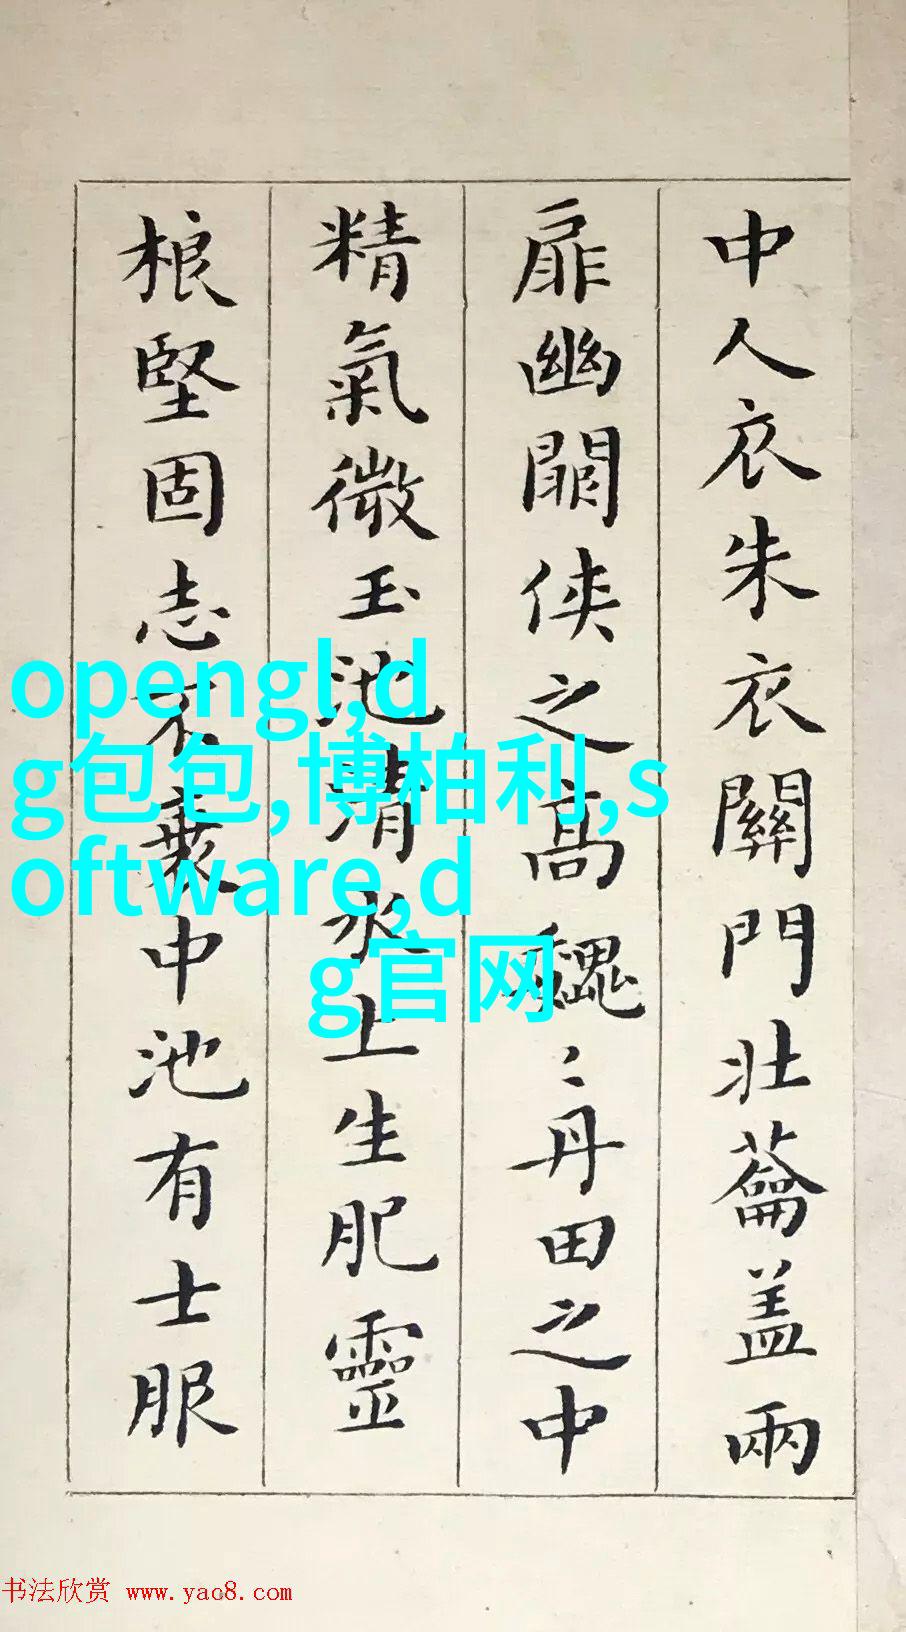 中人衣朱衣關門壮蘥盖兩
扉幽闕侠之高巍〻丹田之中
精氣微玉池清水上生肥靈
根堅固志不衰中池有士服
opengl,d
g包包,博柏利,s
oftware,d
g官网
书法欣赏 www.yac8.com